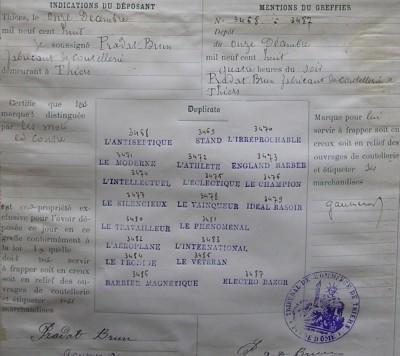 INDICATIONS DU DÉPOSANT
Thiers, le Onze Décembre
mil neuf cent huit
je soussigné Pradat-Brun
fabricant de coutellerie
demeurant à Thiers
MENTIONS DU GREFFIER
N° 3468 à 3487
Dépôt
du Onze Décembre
mil neuf cent huit
quatre heures du soir
Pradat Brun fabricant de coutellerie à
Thiers
Certifie que les
marques distinguée
par les mots
ci contre
est ma propriété ex
clusive pour l'avoir dé
posée ce jour en ce
greffe conformément
à la loi
doit me servir
à frapper soit en creux
soit en relief des ouvra
ges de coutellerie
et étiqueter mes
marchandises
Pradat Brun
Duplicata
3468 3469 3470
L'ANTISEPTIQUE STAND L'IRRÉPROCHABLE
3471 3472 3473
LE MODERNE L'ATHLÈTE ENGLAND BARBER
3474 3475 3476
L'INTELLECTUEL L'ÉCLECTIQUE LE CHAMPION
3477 3478 3479
LE SILENCIEUX LE VAINQUEUR IDEAL RASOIR
3480 3481
LE TRAVAILLEUR LE PHENOMENAL
3482 3483
L'AÉROPLANE L'INTERNATIONAL
3484 3485
LE PRODIGE LE VETERAN
3486 3487
BARBIER MAGNÉTIQUE ELECTRO RAZOR
Marque pour lui
servir à frapper soit en
creux soit en relief des
ouvrages de coutellerie
et étiqueter ses
marchandises
TRIBUNAL DE COMMERCE DE THIERS